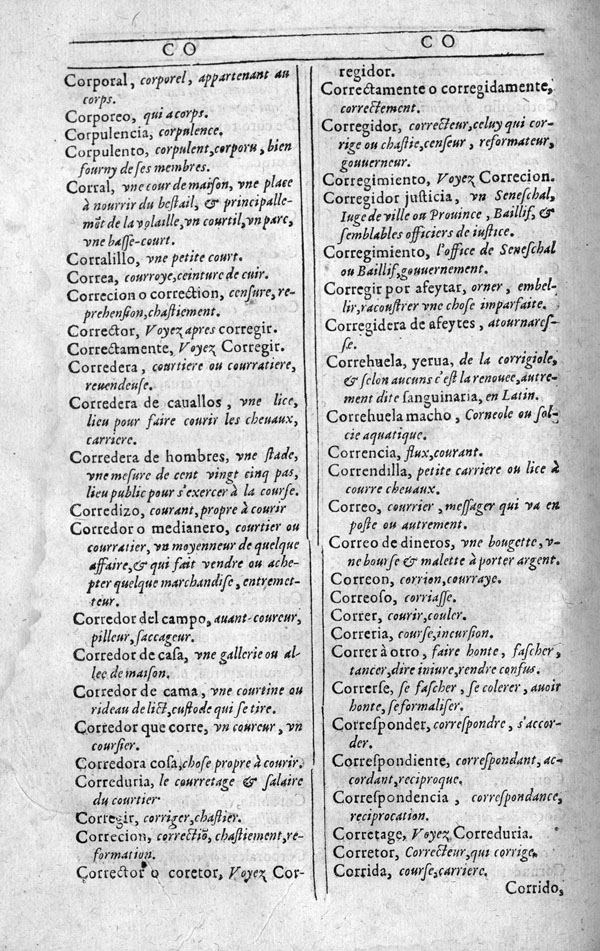 CO
Corporal, corporel, appartenant au
corps.
Corporeo, qui a corps.
Corpulencia, corpulence.
Corpulento, corpulent, corporu, bien
fourny de ses membres.
Corral, vne cour de maison, vne place
à nourrir du bestail, & principalle-
mẽt de la volaille, vn courtil, vn parc,
vne basse-court.
Corralillo, vne petite court.
Correa, courroye, ceinture de cuir.
Correcion o correction, censure, re-
prehension, chastiement.
Corrector, Voyez apres corregir.
Correctamente, Voyez Corregir.
Corredera, courtiere ou courratiere,
reuendeuse.
Corredera de cauallos, vne lice,
lieu pour faire courir les cheuaux,
carriere.
Corredera de hombres, vne stade,
vne mesure de cent vingt cinq pas,
lieu public pour s'exercer à la course.
Corredizo, courant, propre à courir
Corredor o medianero, courtier ou
courratier, vn moyenneur de quelque
affaire, & qui fait vendre ou ache-
pter quelque marchandise, entremet-
teur.
Corredor del campo, auant-coureur,
pilleur, saccageur.
Corredor de casa, vne gallerie ou al-
lee de maison.
Corredor de cama, vne courtine ou
rideau de lict, custode qui se tire.
Corredor que corre, vn coureur, vn
coursier.
Corredora cosa, chose propre à courir.
Correduria, le courretage & salaire
du courtier
Corregir, corriger, chastier.
Correcion, correctiõ, chastiement, re-
formation.
Corrector o coretor, Voyez Cor-
CO
regidor.
Correctamente o corregidamente,
correctement.
Corregidor, correcteur, celuy qui cor-
rige ou chastie, censeur, reformateur,
gouuerneur.
Corregimiento, Voyez Correcion.
Corregidor justicia, vn Seneschal,
Iuge de ville ou Prouince, Baillif, &
semblables officiers de iustice.
Corregimiento, l'office de Seneschal
ou Baillif, gouuernement.
Corregir por afeytar, orner, embel-
lir, racoustrer vne chose imparfaite.
Corregidera de afeytes, atournares-
se.
Correhuela, yerua, de la corrigiole,
& selon aucuns c'est la renouee, autre-
ment dite sanguinaria, en Latin.
Correhuela macho, Corneole ou sol-
cie aquatique.
Correncia, flux, courant.
Correndilla, petite carriere ou lice à
courre cheuaux.
Correo, courrier, messager qui va en
poste ou autrement.
Correo de dineros, vne bougette, v-
ne bourse & malette à porter argent.
Correon, corrion, courraye.
Correoso, corriasse.
Correr, courir, couler.
Correria, course, incursion.
Correr à otro, faire honte, fascher,
tancer, dire iniure, rendre confus.
Correrse, se fascher, se colerer, auoir
honte, se formaliser.
Corresponder, correspondre, s'accor-
der.
Correspondiente, correspondant, ac-
cordant, reciproque.
Correspondencia, correspondance,
reciprocation.
Corretage, Voyez Correduria.
Corretor, Correcteur, qui corrige.
Corrida, course, carriere.
Corrido,